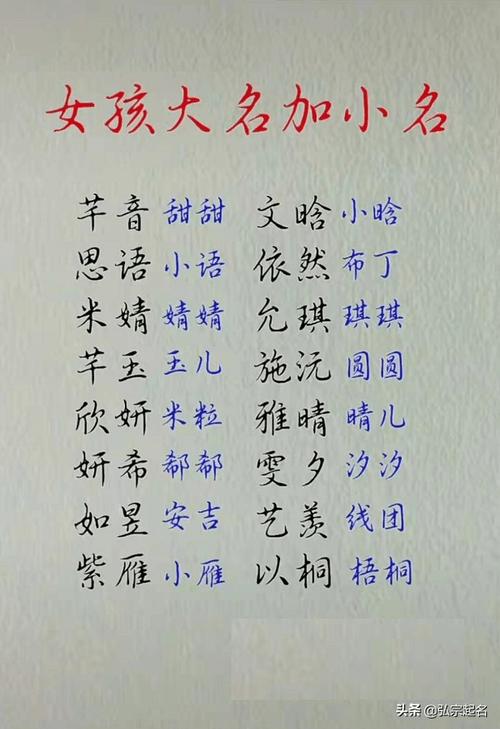 女孩大名加小名
芊音 甜甜 文晗 小晗
思语 小语 依然 布丁
米婧 婧婧 允琪 琪琪
芊玉 玉儿 施沅 圆圆
欣妍 米粒 雅晴 晴儿
妍希 郗郗 雯夕 汐汐
如昱 安吉 艺羡 线团
紫雁 小雁 以桐 梧桐
头条 @弘宗起名